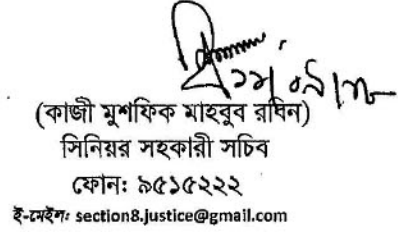 (কাজী মুশফিক মাহবুব রবিন)
সিনিয়র সহকারী সচিব
ফোন: ৯৫১৫২২২
ই-মেইল: section8.justice@gmail.com